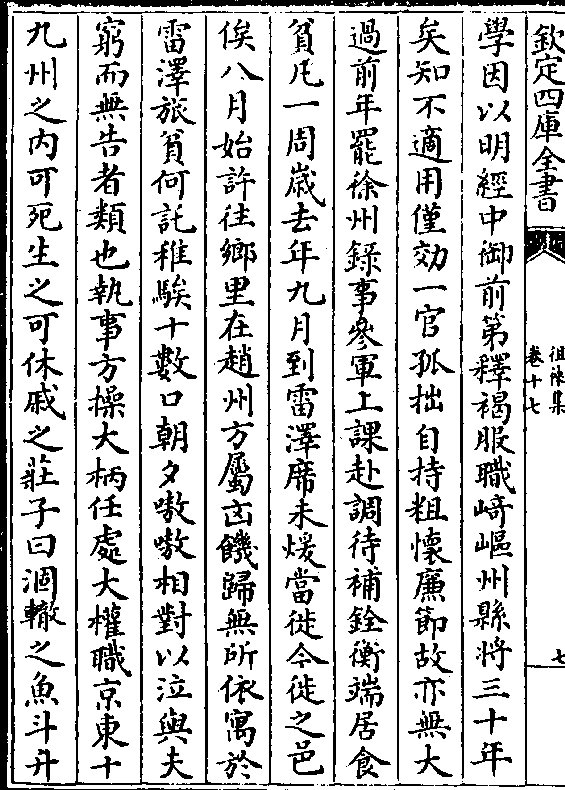 欽定四庫全書
徂徠集
卷十七
七
學因以明經中御前第釋褐服職﨑嶇州縣將三十年
矣知不適用僅効一官孤拙自持粗懷廉節故亦無大
過前年罷徐州錄事參軍上課赴調待補銓衡端居食
貧凡一周歲去年九月到雷澤席未煖當徙今徙之邑
俟八月始許往鄉里在趙州方屬凶饑歸無所依寓於
雷澤旅貧何託稚騃十數口朝夕嗷嗷相對以泣與夫
窮而無告者類也執事方操大柄任處大權職京東十
九州之内可死生之可休戚之莊子曰涸轍之魚斗升